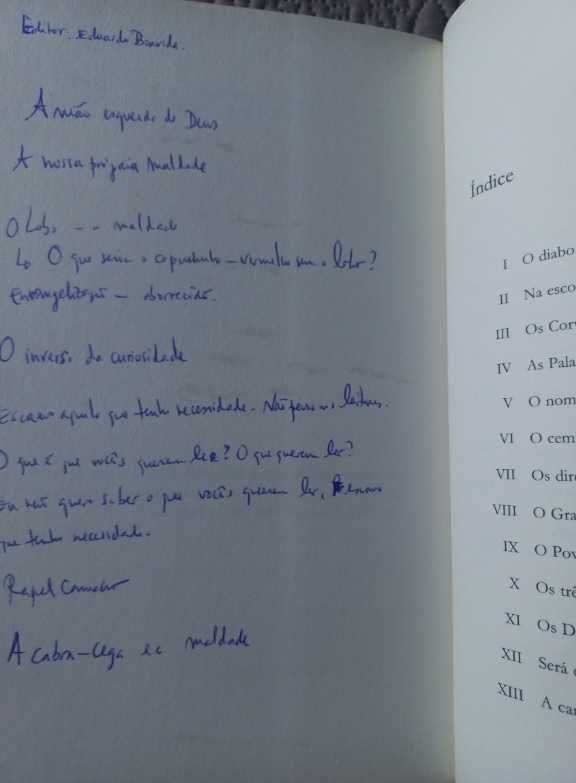 Editor: Eduardo Boavida.
A mão esquerda de Deus
A nossa própria maldade
O Lobo -- maldade
↳ O que seria o capuchinho-vermelho sem o lobo?
Evangelização - aborrecido.
O inverso da curiosidade
Escrevo aquilo que tenho necessidade. Não penso nos leitores.
O que é que vocês querem ler? O que querem ler?
Eu não quero saber o que vocês querem ler, escrevo
que tenho necessidade.
Rapel
A cabra-cega e a maldade
Índice
I O diabo
II Na esco
III Os Corv
IV As Pala
V O nom
VI O cem
VII Os dire
VIII O Gra
IX O Pov
X Os trê
XI Os D
XII Será
XIII A car